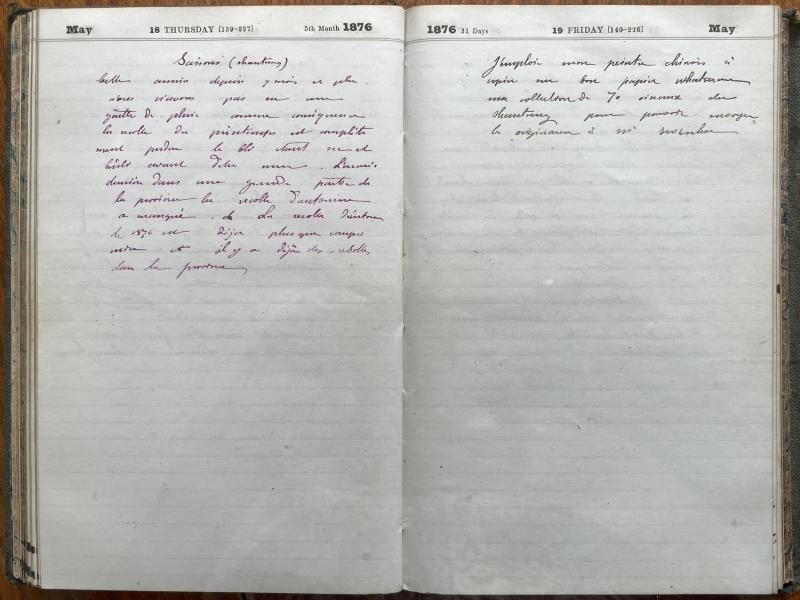 May
18 THURSDAY [139-227]
5th Month 1876
Saisons (shantung)
Cette année depuis 7 mois et plus
nous n'avons pas eu une
goutte de pluie comme conséquence
la récolte du printemps est complète
ment perdue le blé étant sec et
brûlé avant d'être mur. L'année
dernière dans une grande partie de
la province la récolte d'automne
a manqué. de La recolte
de 1876 est déja plus que compro
mise et il y a déja des rebelles
dans la province
1876 31 Days
19 FRIDAY [140-226]
May
J'emploie mon peintre chinois à
copier sur bon papier whatman
ma collection de 70 oiseaux du
shantung pour pouvoir envoyer
les originaux à Mr Swinhoe